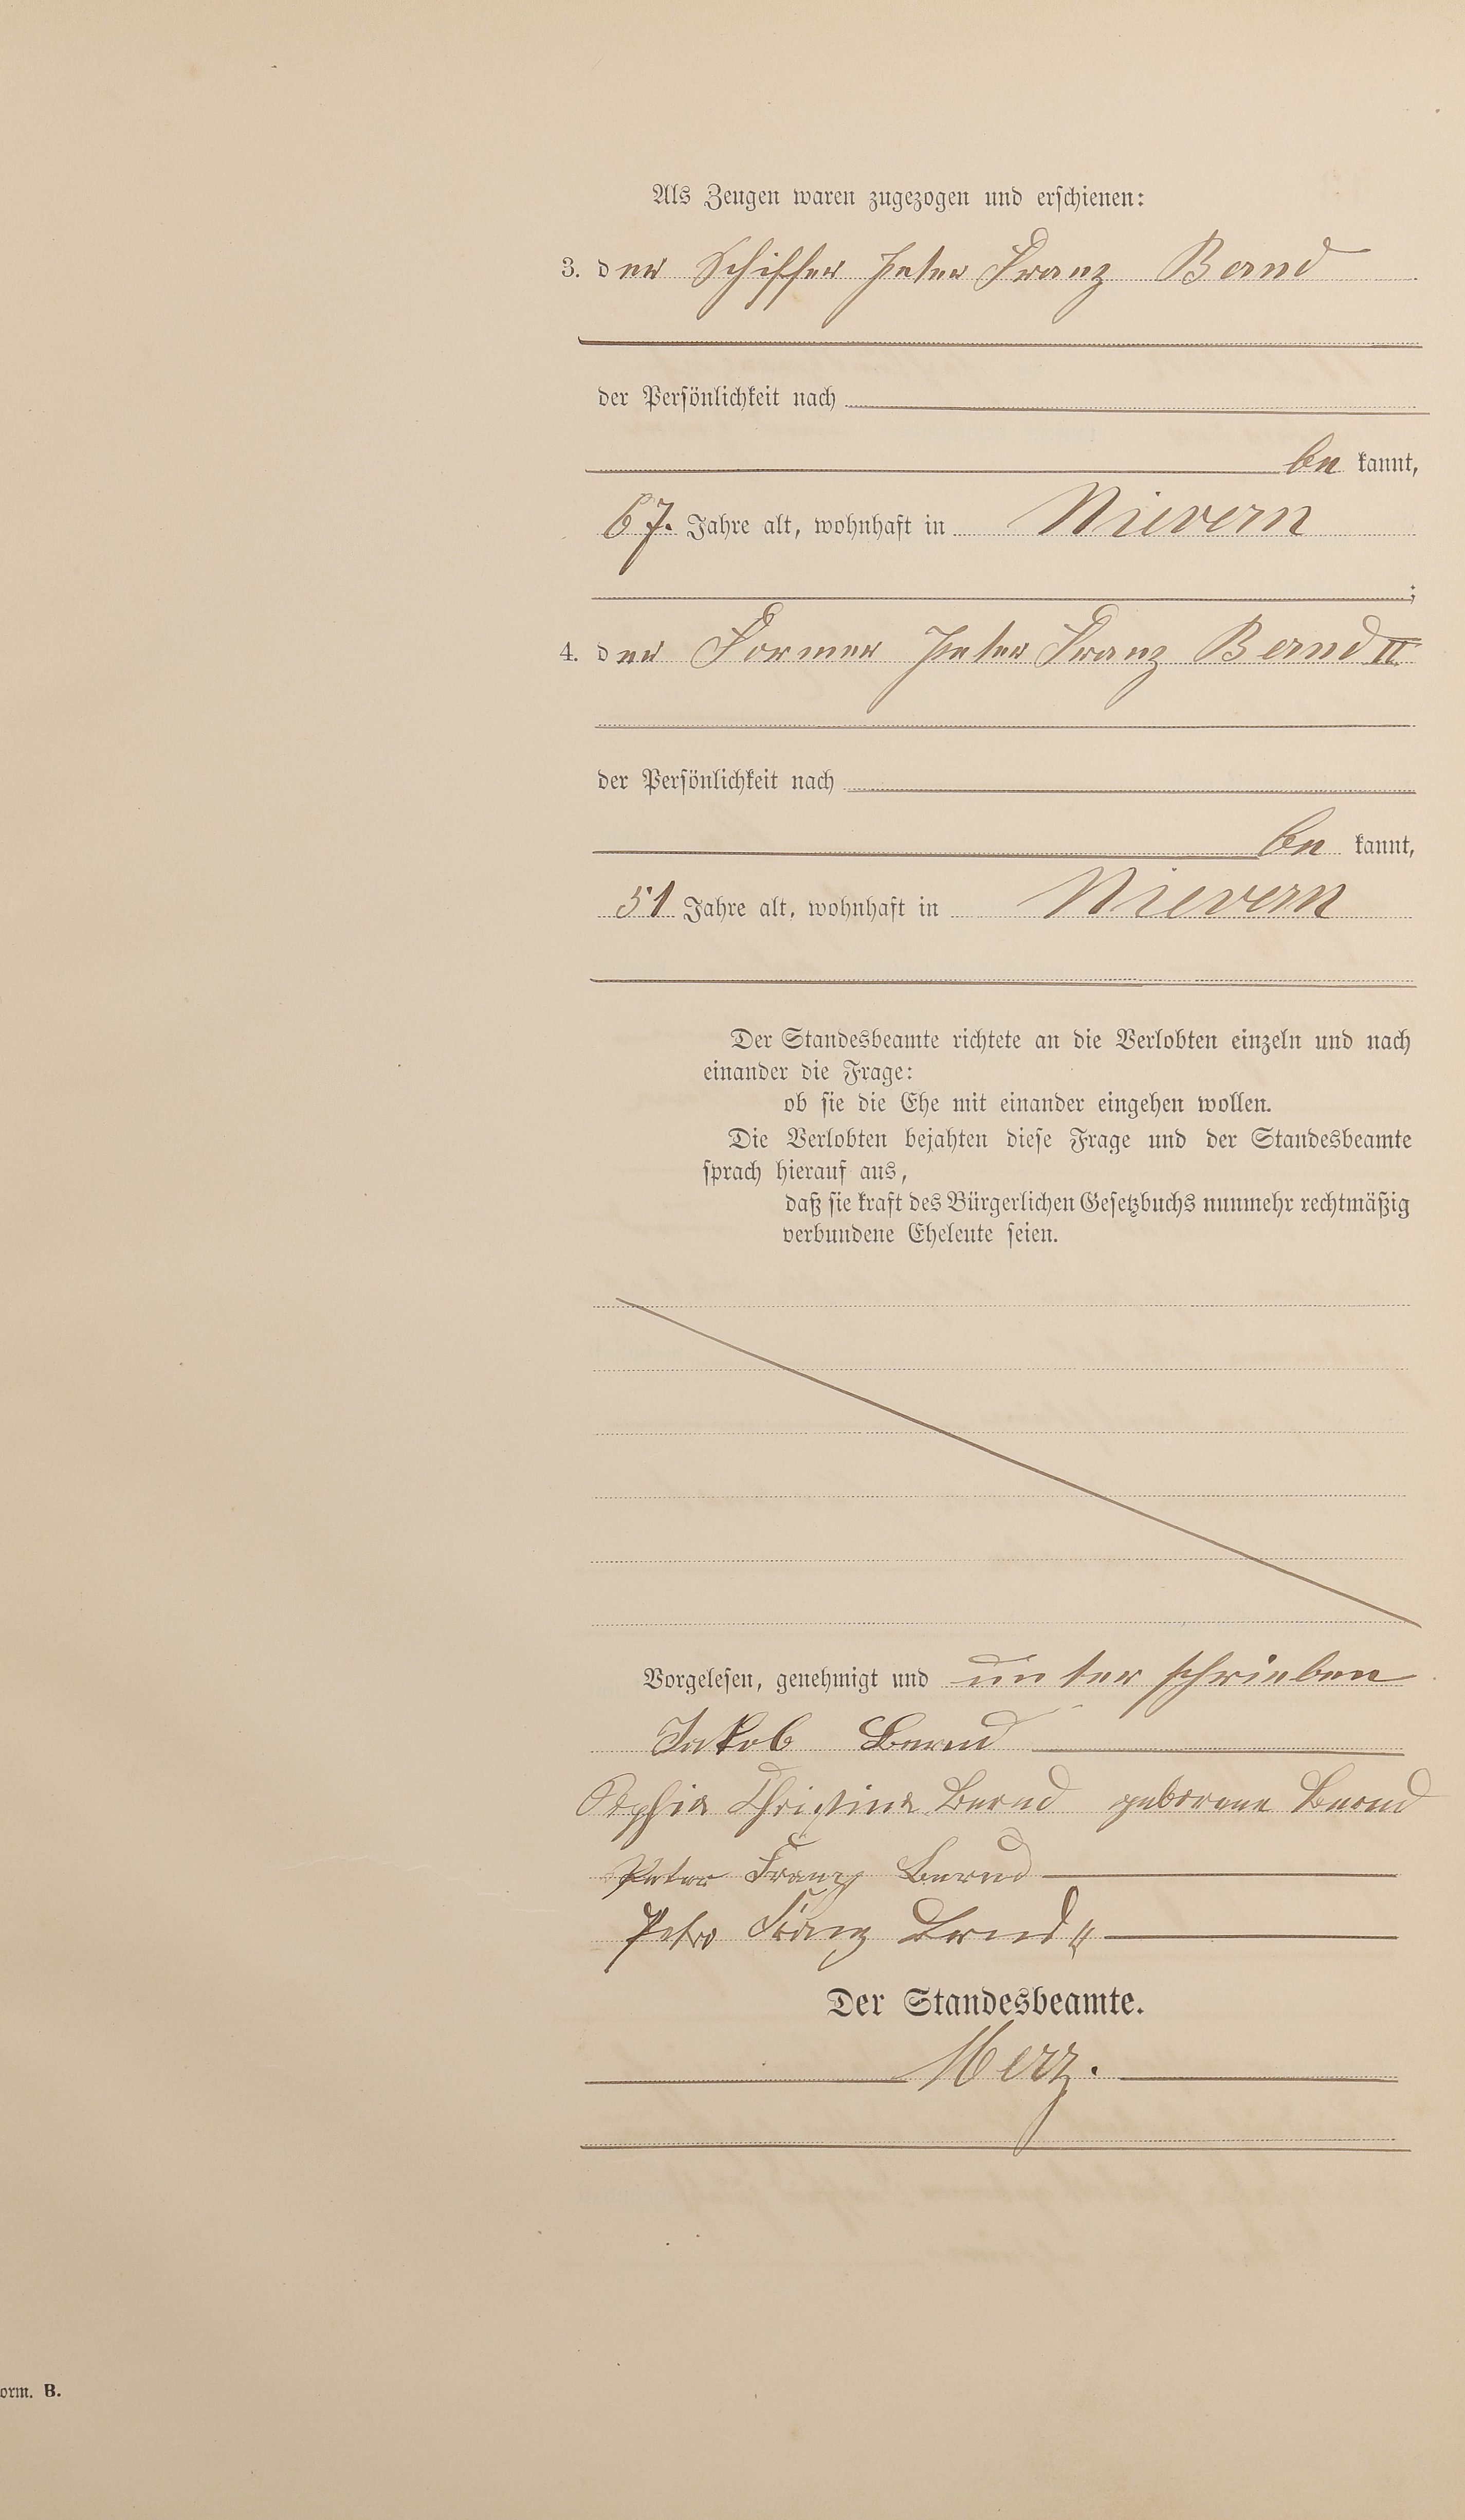 Als Zeugen waren zugezogen und erschienen:
3. der Schiffer Peter Franz Bernd
der Persönlichkeit nach
be kannt,
67. Jahre alt, wohnhaft in Nievern
;
4. der Former Peter Franz Bernd II
der Persönlichkeit nach
be kannt,
51 Jahre alt, wohnhaft in Nievern
Der Standesbeamte richtete an die Verlobten einzeln und nach
einander die Frage:
ob sie die Ehe mit einander eingehen wollen.
Die Verlobten bejahten diese Frage und der Standesbeamte
sprach hierauf aus,
daß sie kraft des Bürgerlichen Gesetzbuchs nunmehr rechtmäßig
verbundene Eheleute seien.
Vorgelesen, genehmigt und unterschrieben
Jakob Bernd
Sophia Christina Bernd geborene Bernd
Peter Franz Bernd
Peter Franz Bernd II
Der Standesbeamte.
Merz.
orm. B.